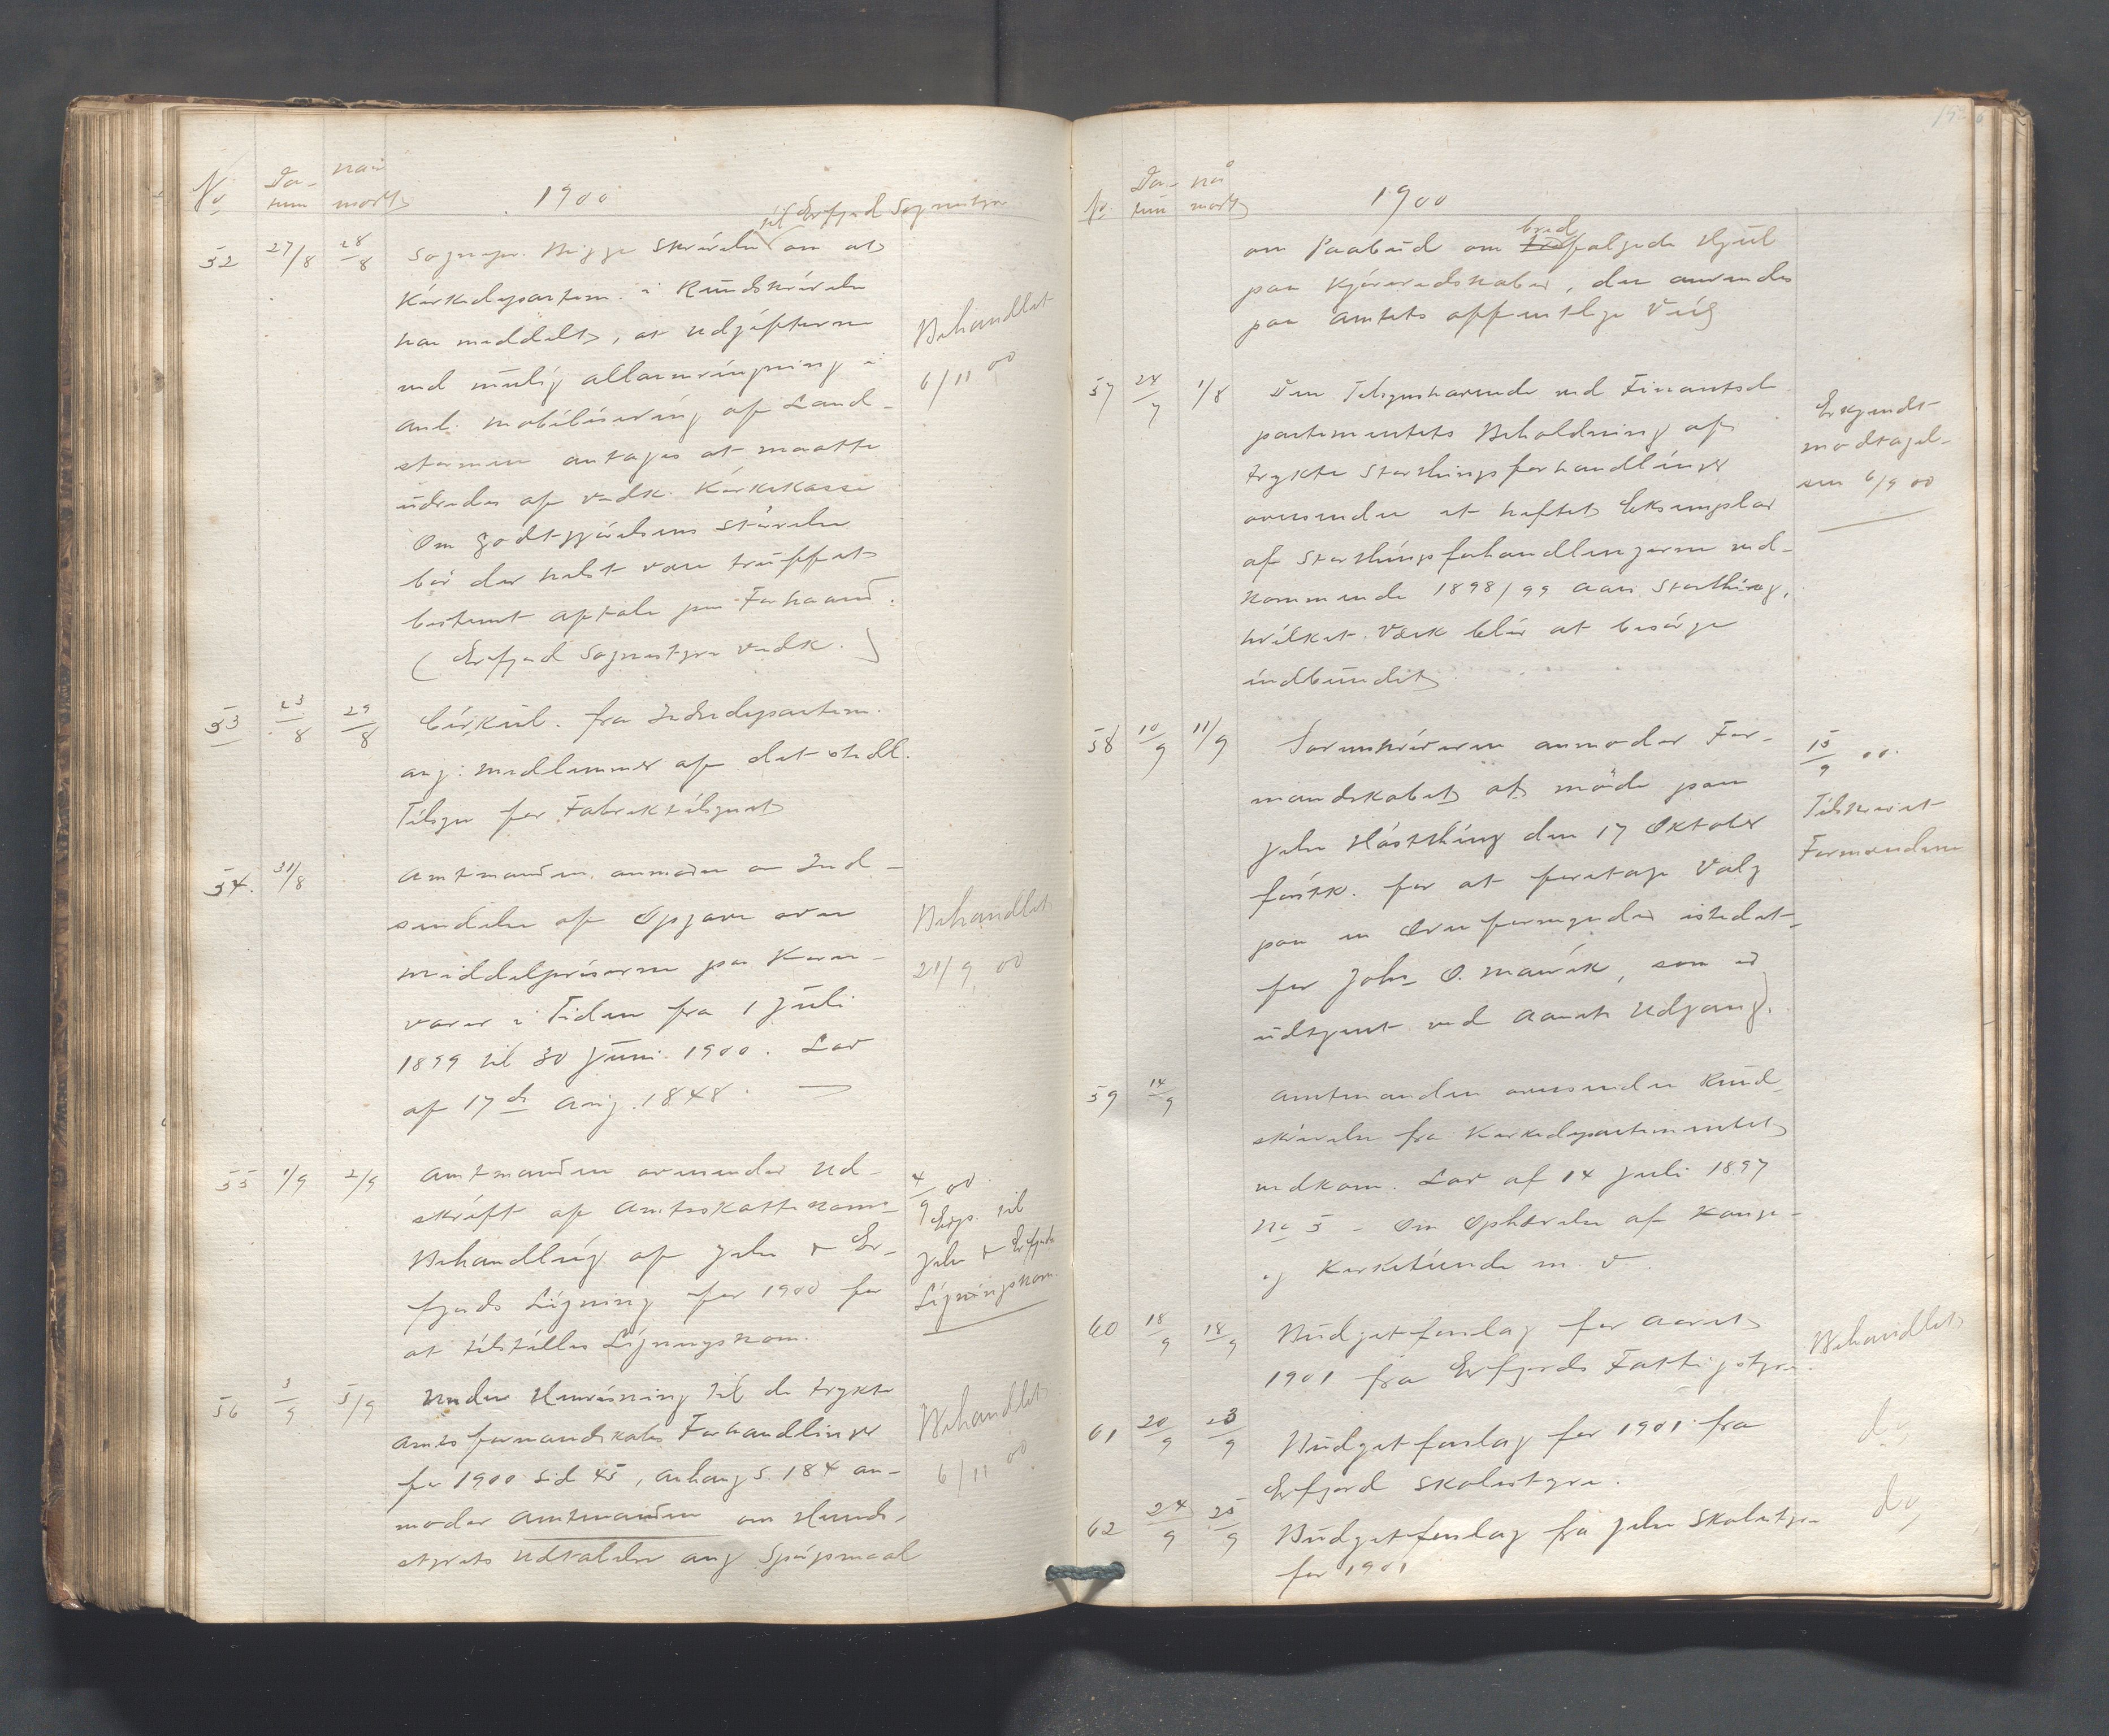 No Da-
tum naar
modt 1900
til Erfjord Sognestyre
52 27/8 28/8 Sognepr. Bigge Skrivelse om at
Kirkedepartem. i Rundskrivelse
har meddelt, at Udgifterne
ved mulig allarmringning i
anl. mobilisering af Land-
stormen antages at maatte
udredes af vedk. Kirkekasse
Om Godtgjörelsens Störrelse
bör der helst være truffet
bestemt aftale paa Forhaand.
(Erfjord Sognestyre vedk.)
Behandlet
6/11 00
53 23/8 29/8 Cirkul. fra Indredepartem.
ang: medlemmer af det stedl.
Tilsyn for Fabriktilsynet
54. 31/8 Amtmanden anmoder om Ind-
sendelse af Opgave over
Middelpriserne paa Korn-
varer i Tiden fra 1 Juli
1899 til 30 Juni 1900. Lov
af 17de Aug. 1848.
Behandlet
21/9 00
55 1/9 2/9 Amtmanden oversender Ud-
skrift af Amtsskattekom-
Behandling af Jelse & Er-
fjords Ligning for 1900 for
at tilstilles Ligningskom.
4/9 00.
Exp. til
Jelse & Erfjords
Ligningskom.
56 3/9 5/9 Under Henvisning til de trykte
Amtsformandskabs Forhandlinger
for 1900 Sid 45, Anhang S. 184 an-
moder Amtmanden om Herreds-
styrets Udtalelse ang Spörgsmaal
Behandlet
6/11 00
No. Da-
tum naa
modt 1900
bred
om Paabud om fælgede Hjul
paa Kjöreredskaber, der anvendes
paa Amtets offentlige Veie
57 28/7 1/8 Den Tilsynshavende ved Finantsde-
partementets Beholdning af
trykte Storthingsforhandlinger
oversender et heftet Eksemplar
af Storthingsforhandlingerne ved-
kommende 1898/99 Aars Storthing,
hvilket Værk blir at besörge
indbundet
Erkjendt
modtagel-
sen 6/9 00
58 10/9 11/9 Sorenskriveren anmoder For-
mandskabet at möde paa
Jelse Höstthing den 17 Oktober
förstk. for at foretage Valg
paa en Overformynder istedet-
for John O. Marvik, som er
udtjent ved Aarets Udgang.
15/9 00.
Tilskrevet
Formændene
59 14/9 Amtmanden oversender Rund-
skrivelse fra Kirkedepartementet
vedkom. Lov af 14 Juli 1897
No 5 - Om Ophævelse af Konge-
og Kirketiende m. v.
60 18/9 18/9 Budgetforslag for Aaret
1901 fra Erfjords Fattigstyre.
Behandlet
61 20/9 23/9 Budgetforslag for 1901 fra
Erfjord Skolestyre.
do
62 24/9 25/9 Budgetforslag fra Jelse Skolestyre
for 1901
do